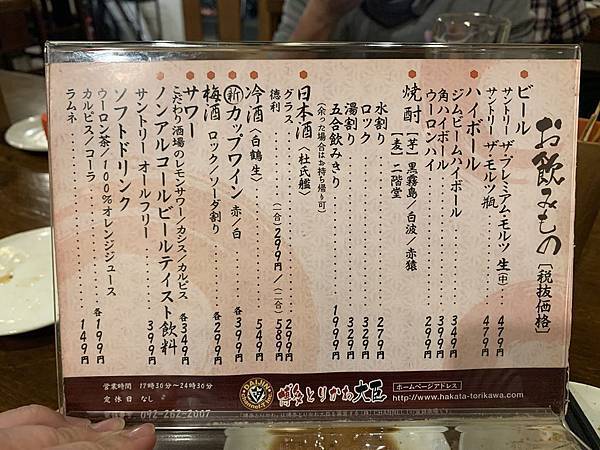 お飲みもの [税抜価格]
ビール
サントリー ザ・プレミアム・モルツ 生(中) 479円
サントリー ザ・モルツ瓶 479円
ハイボール
ジムビームハイボール 349円
角ハイボール 399円
ウーロンハイ 299円
焼酎 [芋] 黒霧島/白波/赤猿
[麦] 二階堂
水割り 279円
ロック 329円
湯割り 329円
五合飲みきり 1929円
(余った場合はお持ち帰り可)
日本酒〈杜氏鑑〉
グラス 299円
徳利 (一合)299円/(二合)589円
冷酒〈白鶴 生〉 549円
新カップワイン 赤/白 各399円
梅酒 ロック/ソーダ割り 各299円
サワー
こだわり酒場のレモンサワー/カシス/カルピス 各349円
ノンアルコールビールテイスト飲料
サントリー オールフリー 399円
ソフトドリンク
ウーロン茶/100%オレンジジュース
カルピス/コーラ 各199円
ラムネ 149円
営業時間 17時30分〜24時30分
定休日 なし
092-262-2007
博多とりかわ大臣
ホームページアドレス
http://www.hakata-torikawa.com/